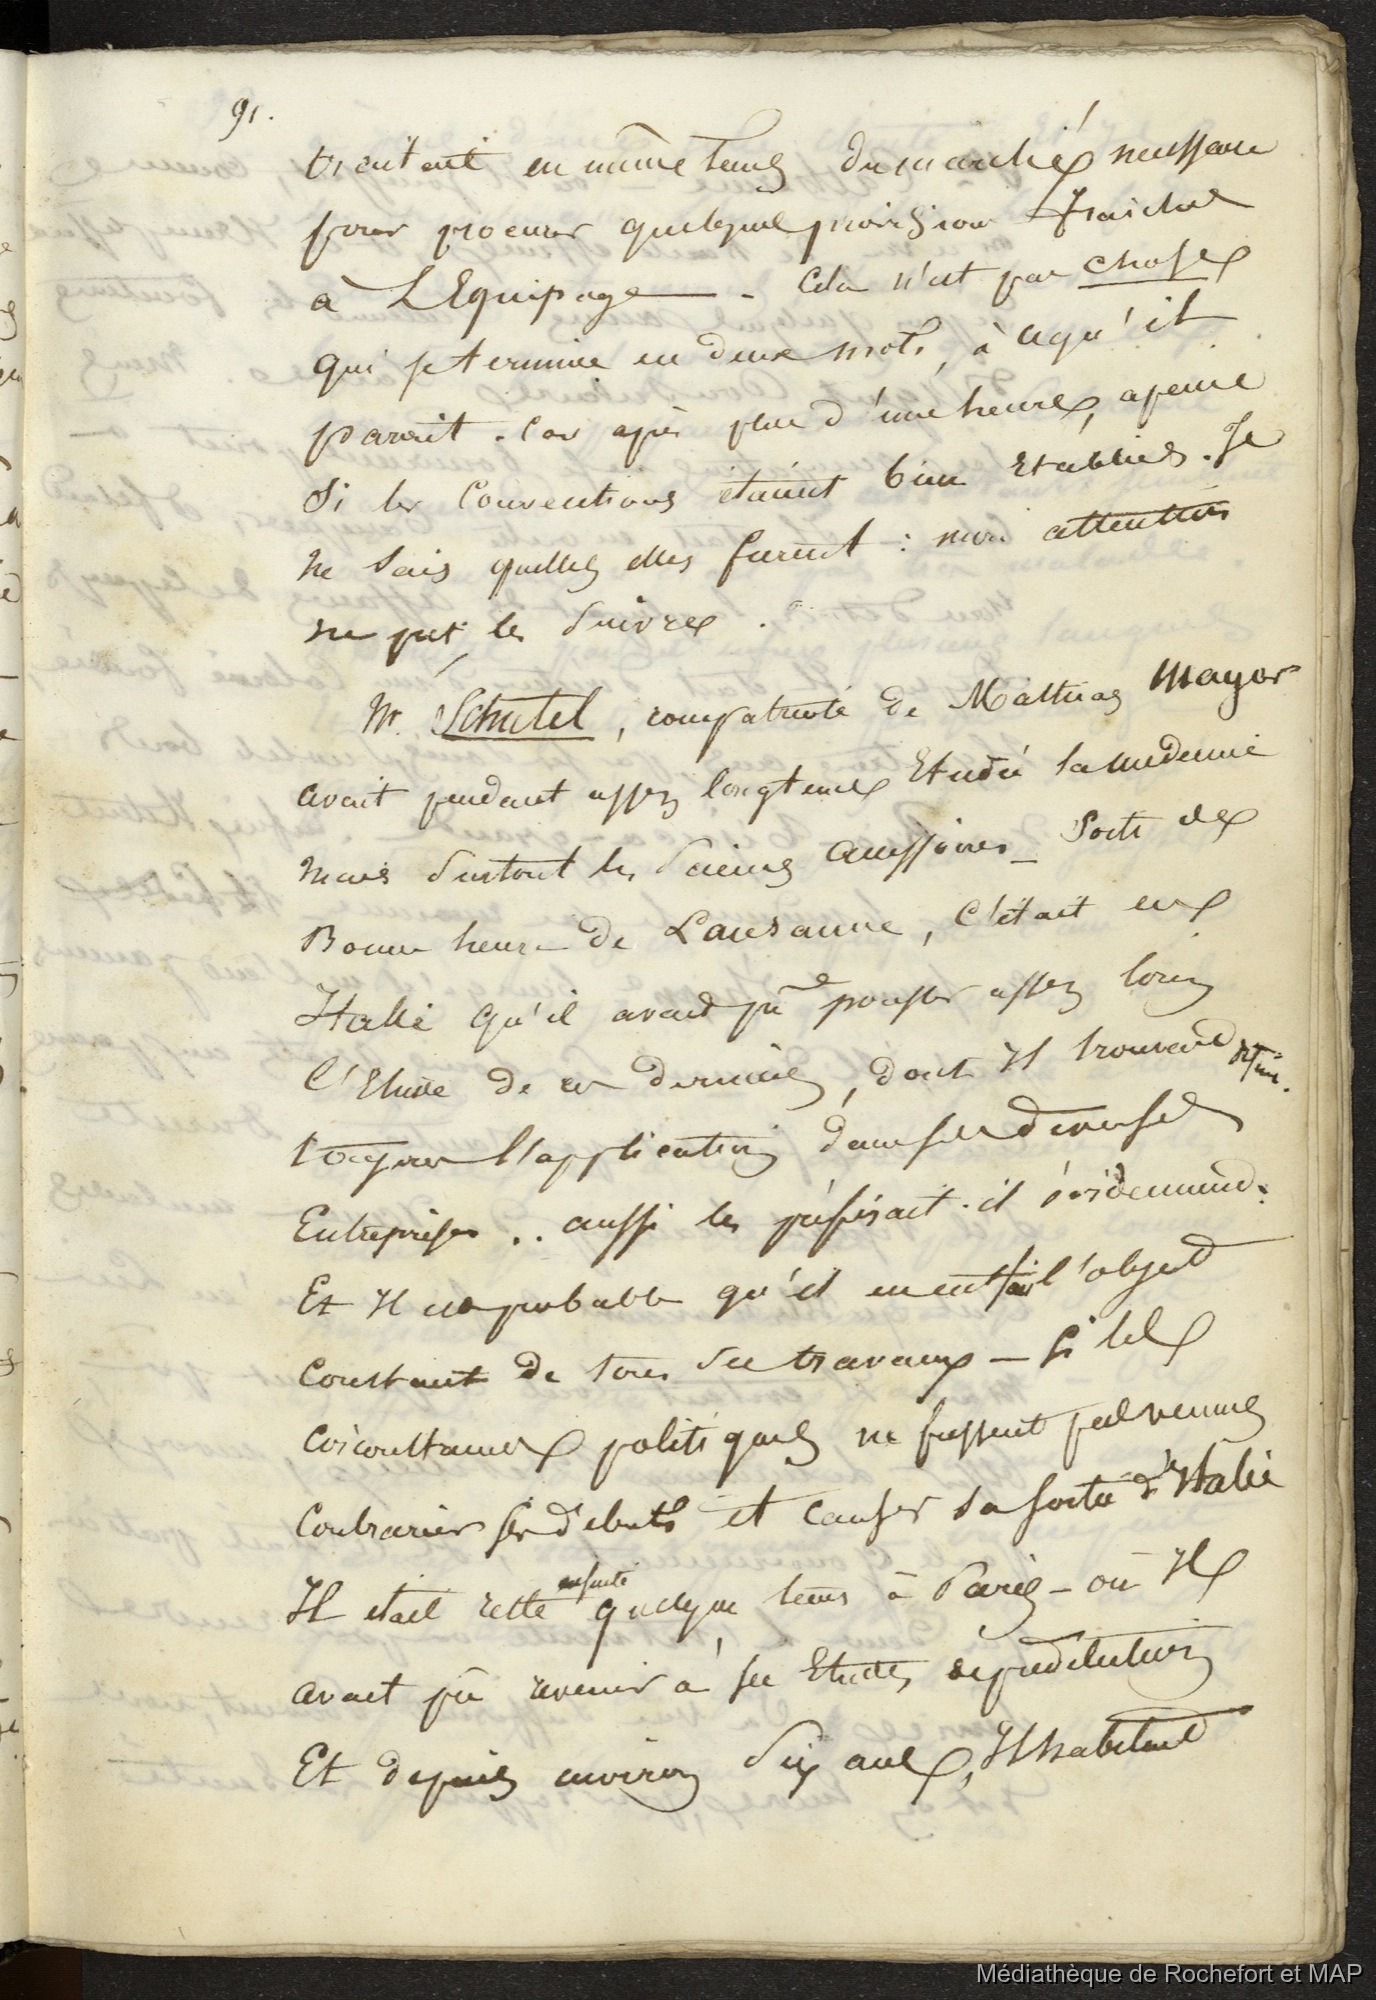 91.
traitant en même tems du marché nécessaire
pour procurer quelques provisions fraiches
à L'Equipage — . Cela n'est pas chose
qui se termine en deux mots, à ce qu'il
parait . Car après plus d'une heure, apeine
Si les Conventions étaient bien Etablies . Je
ne sais quelles elles furent : mon attention
ne put les suivre .
Mr. Schutel, compatriote de Mathias Mayor
avait pendant assez longtems Etudié la médecine
mais surtout les Sciences accessoires — Sorti de
Bonne heure de Lausanne, C'était en
Italie qu'il avait pu pousser assez loin
l'Etude de ces dernières, dont Il trouvait
toujours l'application dans ses diverses
Entreprises .. aussi les préférait-il évidemment.
Et Il est probable qu'il en eut fait l'objet
constant de tous ses travaux — si les
circonstances politiques ne fussent pas venues
contrarier ses débuts et causer sa sortie d'Italie
Il était resté ensuite quelque tems à Paris — où Il
avait pû revenir à ses Etudes de prédilection
Et depuis environ Six ans, Il habitait